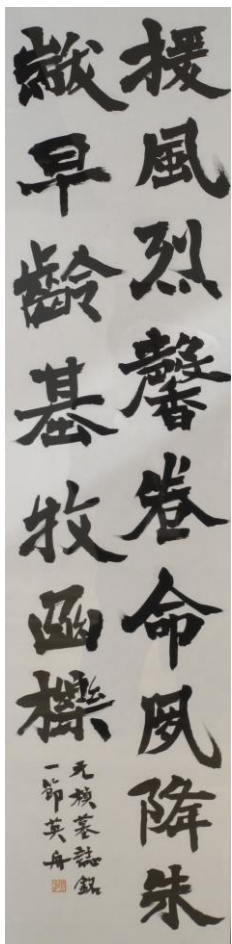 援風烈馨卷命夙降朱
黻早齡基牧函櫟
元楨墓誌銘
一節英舟